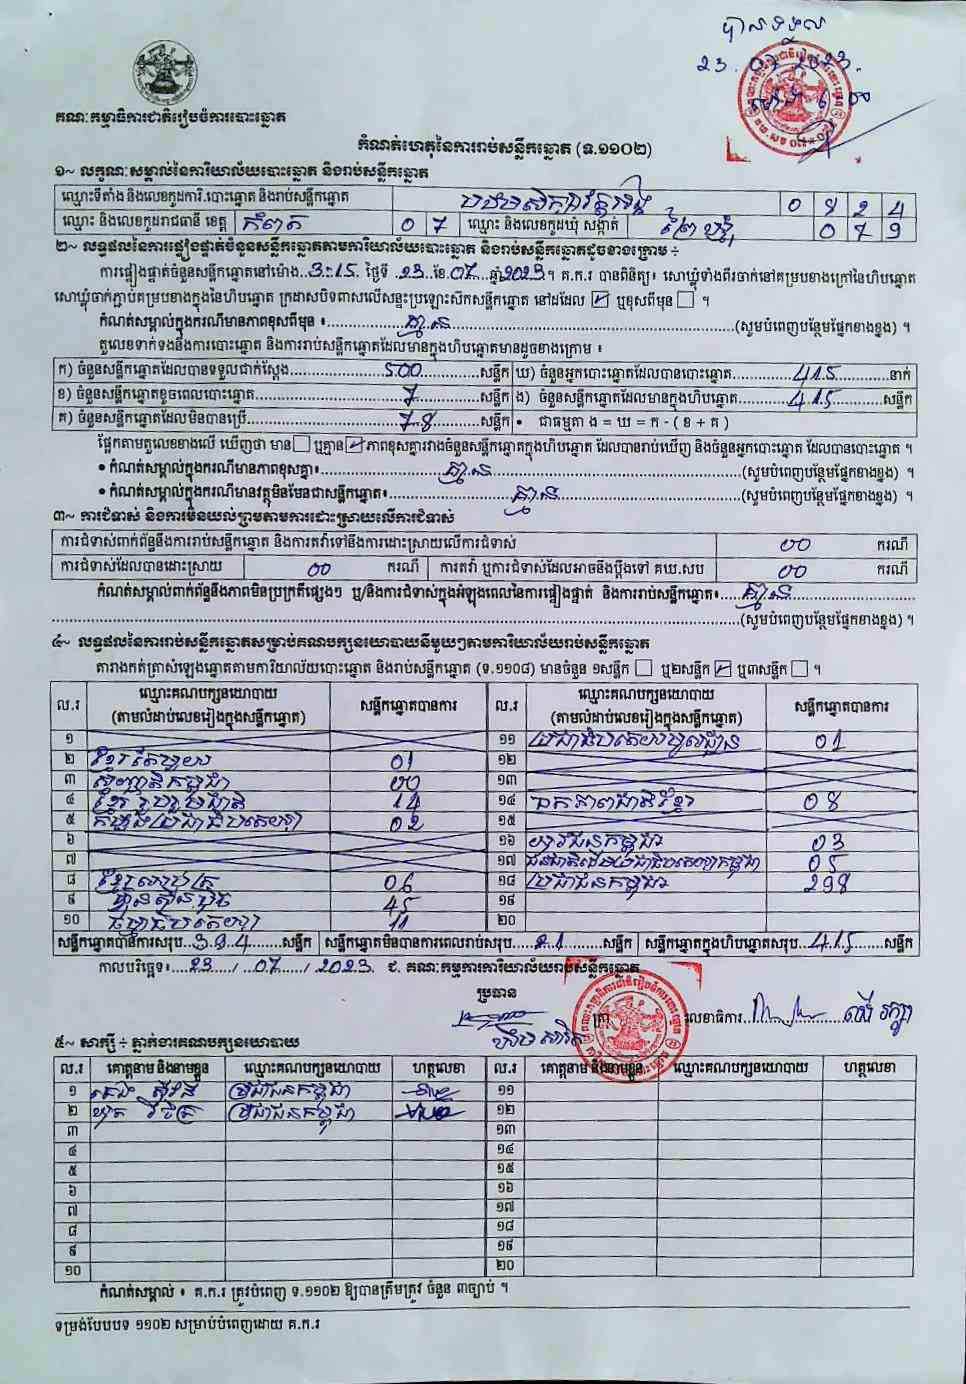 បានទទួល
គណៈកម្មាធិការជាតិរៀបចំការបោះឆ្នោត
កំណត់ហេតុនៃការរាប់សន្លឹកឆ្នោត (ទ.១១០២)
១~ លក្ខណៈសម្គាល់នៃការិយាល័យបោះឆ្នោត និងរាប់សន្លឹកឆ្នោត
ឈ្មោះទីតាំង និងលេខកូដការិ.បោះឆ្នោត និងរាប់សន្លឹកឆ្នោត
ឈ្មោះ និងលេខកូដរាជធានី ខេត្ត កំពត 0 7 ឈ្មោះ និងលេខកូដឃុំ សង្កាត់
២~ លទ្ធផលនៃការផ្ទៀងផ្ទាត់ចំនួនសន្លឹកឆ្នោតតាមការិយាល័យបោះឆ្នោត និងរាប់សន្លឹកឆ្នោតដូចខាងក្រោម ÷
ការផ្ទៀងផ្ទាត់ចំនួនសន្លឹកឆ្នោតនៅម៉ោង 3:15 ថ្ងៃទី 23 ខែ 07 ឆ្នាំ 2023 ។ គ.ក.រ បានពិនិត្យ៖ សោឃ្លុំទាំងពីរចាក់នៅគម្របខាងក្រៅនៃហិបឆ្នោត
សោឃ្លុំចាក់ភ្ជាប់គម្របខាងក្នុងនៃហិបឆ្នោត ក្រដាសបិទពាសលើសន្ទះប្រឡោះស៊កសន្លឹកឆ្នោត នៅដដែល ☑ ឬខុសពីមុន ☐ ។
កំណត់សម្គាល់ក្នុងករណីមានភាពខុសពីមុន ៖ គ្មាន (សូមបំពេញបន្ថែមផ្នែកខាងខ្នង) ។
តួលេខទាក់ទងនឹងការបោះឆ្នោត និងការរាប់សន្លឹកឆ្នោតដែលមានក្នុងហិបឆ្នោតមានដូចខាងក្រោម ៖
ក) ចំនួនសន្លឹកឆ្នោតដែលបានទទួលជាក់ស្តែង 500 សន្លឹក ឃ) ចំនួនអ្នកបោះឆ្នោតដែលបានបោះឆ្នោត 415 នាក់
ខ) ចំនួនសន្លឹកឆ្នោតខូចពេលបោះឆ្នោត 7 សន្លឹក ង) ចំនួនសន្លឹកឆ្នោតដែលមានក្នុងហិបឆ្នោត 415 សន្លឹក
គ) ចំនួនសន្លឹកឆ្នោតដែលមិនបានប្រើ 78 សន្លឹក • ជាធម្មតា ង = ឃ = ក - ( ខ + គ )
ផ្អែកតាមតួលេខខាងលើ ឃើញថា មាន ☐ ឬគ្មាន ☑ ភាពខុសគ្នារវាងចំនួនសន្លឹកឆ្នោតក្នុងហិបឆ្នោត ដែលបានរាប់ឃើញ និងចំនួនអ្នកបោះឆ្នោត ដែលបានបោះឆ្នោត ។
• កំណត់សម្គាល់ក្នុងករណីមានភាពខុសគ្នា៖ គ្មាន (សូមបំពេញបន្ថែមផ្នែកខាងខ្នង) ។
• កំណត់សម្គាល់ក្នុងករណីមានវត្ថុមិនមែនជាសន្លឹកឆ្នោត៖ គ្មាន (សូមបំពេញបន្ថែមផ្នែកខាងខ្នង) ។
៣~ ការជំទាស់ និងការមិនយល់ព្រមតាមការដោះស្រាយលើការជំទាស់
ការជំទាស់ពាក់ព័ន្ធនឹងការរាប់សន្លឹកឆ្នោត និងការតវ៉ាទៅនឹងការដោះស្រាយលើការជំទាស់ 00 ករណី
ការជំទាស់ដែលបានដោះស្រាយ 00 ករណី ការតវ៉ា ឬការជំទាស់ដែលអាចនឹងប្តឹងទៅ គឃ.សប 00 ករណី
កំណត់សម្គាល់ពាក់ព័ន្ធនឹងភាពមិនប្រក្រតីផ្សេងៗ ឬ/និងការជំទាស់ក្នុងអំឡុងពេលនៃការផ្ទៀងផ្ទាត់ និងការរាប់សន្លឹកឆ្នោត៖ គ្មាន
(សូមបំពេញបន្ថែមផ្នែកខាងខ្នង) ។
៤~ លទ្ធផលនៃការរាប់សន្លឹកឆ្នោតសម្រាប់គណបក្សនយោបាយនីមួយៗតាមការិយាល័យរាប់សន្លឹកឆ្នោត
តារាងកត់ត្រាសំឡេងឆ្នោតតាមការិយាល័យបោះឆ្នោត និងរាប់សន្លឹកឆ្នោត (ទ.១១០៨) មានចំនួន ១សន្លឹក ☐ ឬ២សន្លឹក ☑ ឬ៣សន្លឹក ☐ ។
ល.រ ឈ្មោះគណបក្សនយោបាយ (តាមលំដាប់លេខរៀងក្នុងសន្លឹកឆ្នោត) សន្លឹកឆ្នោតបានការ ល.រ ឈ្មោះគណបក្សនយោបាយ (តាមលំដាប់លេខរៀងក្នុងសន្លឹកឆ្នោត) សន្លឹកឆ្នោតបានការ
១ ១១ ប្រជាធិបតេយ្យមូលដ្ឋាន 01
២ ខ្មែរតែមួយ 01 ១២
៣ 00 ១៣
៤ ខ្មែររួបរួមជាតិ 14 ១៤ ឯកភាពជាតិខ្មែរ 08
៥ កម្លាំងប្រជាធិបតេយ្យ 02 ១៥
៦ ១៦ យុវជនកម្ពុជា 03
៧ ១៧ ជនជាតិដើមប្រជាធិបតេយ្យកម្ពុជា 05
៨ ខ្មែរអភិរក្ស 06 ១៨ ប្រជាជនកម្ពុជា 298
៩ ហ្វ៊ុនស៊ិនប៉ិច 45 ១៩
១០ ធម្មាធិបតេយ្យ 11 ២០
សន្លឹកឆ្នោតបានការសរុប 394 សន្លឹក សន្លឹកឆ្នោតមិនបានការពេលរាប់សរុប 21 សន្លឹក សន្លឹកឆ្នោតក្នុងហិបឆ្នោតសរុប 415 សន្លឹក
កាលបរិច្ឆេទ៖ 23 / 07 / 2023 ជ. គណៈកម្មការការិយាល័យរាប់សន្លឹកឆ្នោត
ប្រធាន
ត្រា លេខាធិការ
៥~ សាក្សី ÷ ភ្នាក់ងារគណបក្សនយោបាយ
ល.រ គោត្តនាម និងនាមខ្លួន ឈ្មោះគណបក្សនយោបាយ ហត្ថលេខា ល.រ គោត្តនាម និងនាមខ្លួន ឈ្មោះគណបក្សនយោបាយ ហត្ថលេខា
១ ប្រជាជនកម្ពុជា ១១
២ ប្រជាជនកម្ពុជា ១២
៣ ១៣
៤ ១៤
៥ ១៥
៦ ១៦
៧ ១៧
៨ ១៨
៩ ១៩
១០ ២០
កំណត់សម្គាល់ ៖ គ.ក.រ ត្រូវបំពេញ ទ.១១០២ ឱ្យបានត្រឹមត្រូវ ចំនួន ៣ច្បាប់ ។
ទម្រង់បែបបទ ១១០២ សម្រាប់បំពេញដោយ គ.ក.រ